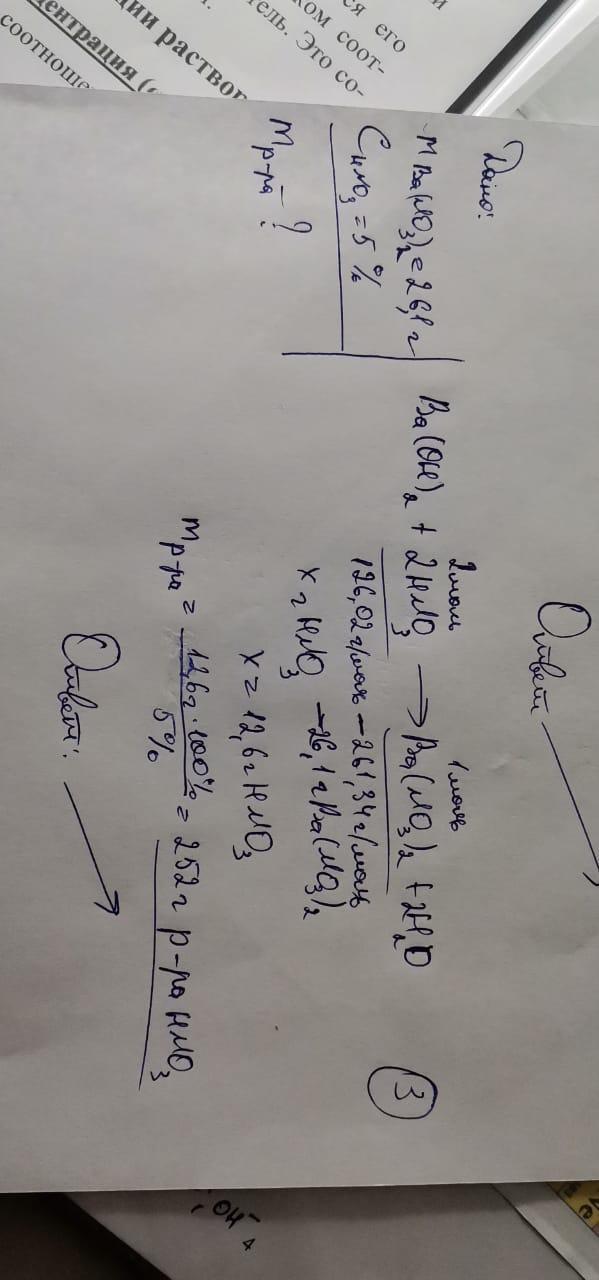 ся его
ком соот-
тель. Это со-
ции раствор
центрация (
соотноше
Ответ
Дано:
m Ba(NO3)2 = 26,1 г
C HNO3 = 5 %
m р-ра - ?
2 моль 1 моль
Ba(OH)2 + 2HNO3 → Ba(NO3)2 + 2H2O
126,02 г/моль – 261,34 г/моль
x г HNO3 – 26,1 г Ba(NO3)2
x = 12,6 г HNO3
m р-ра = 12,6 г · 100% / 5% = 252 г р-ра HNO3
Ответ:
3
OH-
4